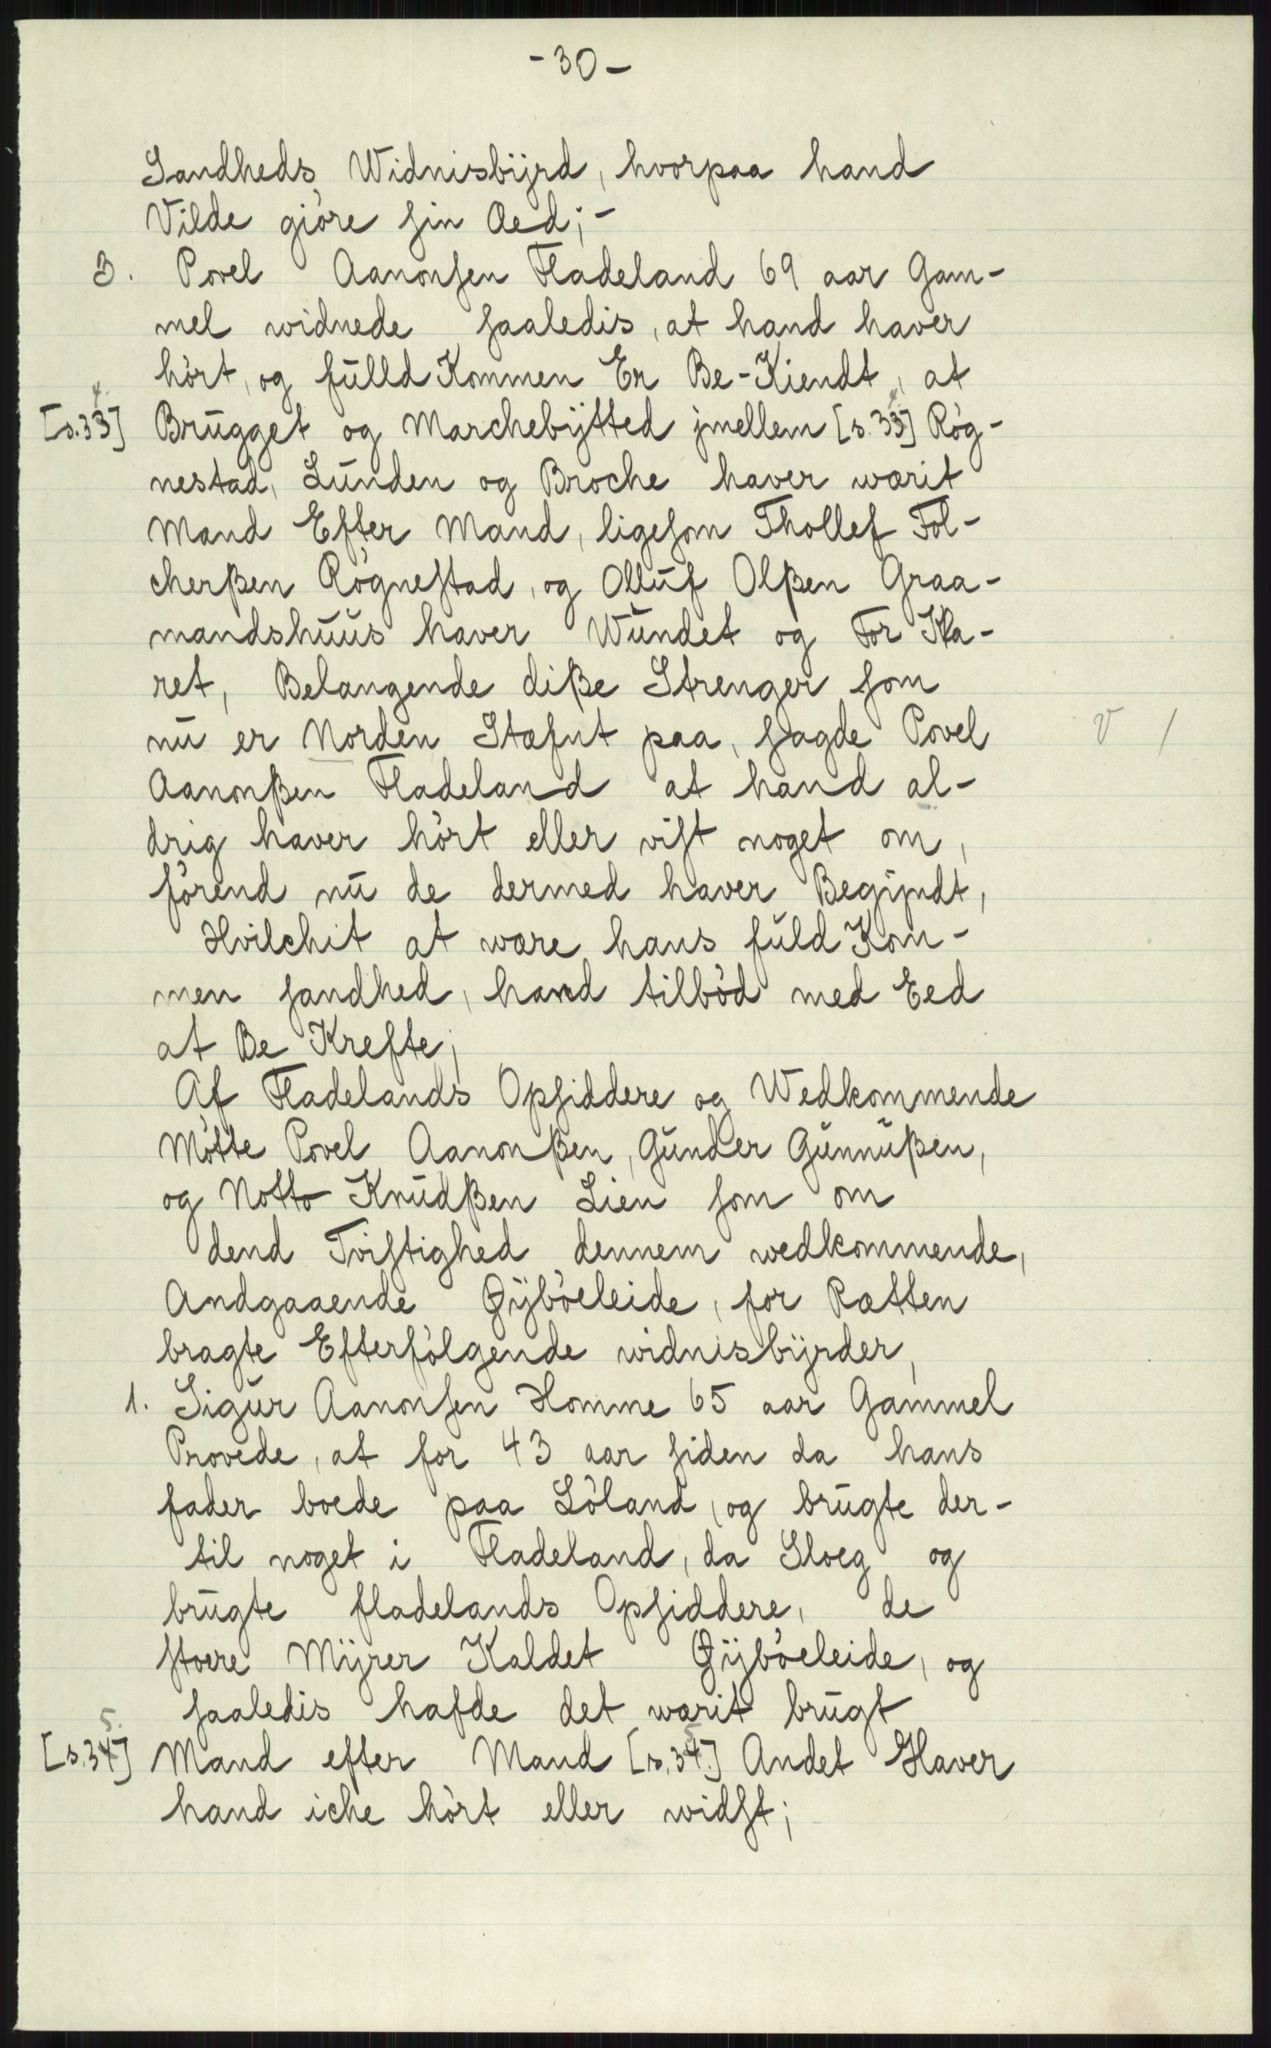 - 30 -
Sandheds Widnisbijrd, hvorpaa hand
Vilde giòre sin Aed; -
3. Povel Aanonsen Fladeland 69 aar Gam-
mel widnede saaledis, at hand haver
hòrt, og fulldKommen Er Be-Kiendt, at
[s.33] 4. Brugget og Marchebijtted jmellem [s.33] 4 Ròg-
nestad, Lunden og Broche haver wærit
Mand Efter Mand, ligesom Thollef Fol-
cherßen Rògnestad, og Olluf Olßen Graa-
mandshuus haver Wundet og For Kla-
ret, Belangende diße Strenger som
nu er Norden Stæfnt paa, sagde Povel V /
Aanonßen Fladeland at hand al-
drig haver hòrt eller vist noget om,
fòrend nu de dermed haver Begijndt,
Hvilchit at wære hans fuldKom-
men sandhed, hand tilbòd med Eed
at Be Krefte;
Af Fladelands Opsiddere og Wedkommende
Mòtte Povel Aanonßen, Gunder Gunnußen,
og Notto Knudßen Lien som om
dend Tvistighed dennem wedkommende,
Andgaaende Øijbòeleide, for Rætten
bragte Efterfòlgende widnisbijrder,
1. Sigur Aanonsen Homme 65 aar Gammel
Provede, at for 43 aar siden da hans
fader boede paa Lòland, og brugte der-
til noget i Fladeland, da Sloeg og
brugte fladelands Opsiddere, de
stoere Mijrer Kaldet Øijbòeleide, og
saaledis hafde det wærit brugt
[s.34] 5. Mand efter Mand [s.34.] 5 Andet Haver
hand iche hòrt eller widst;